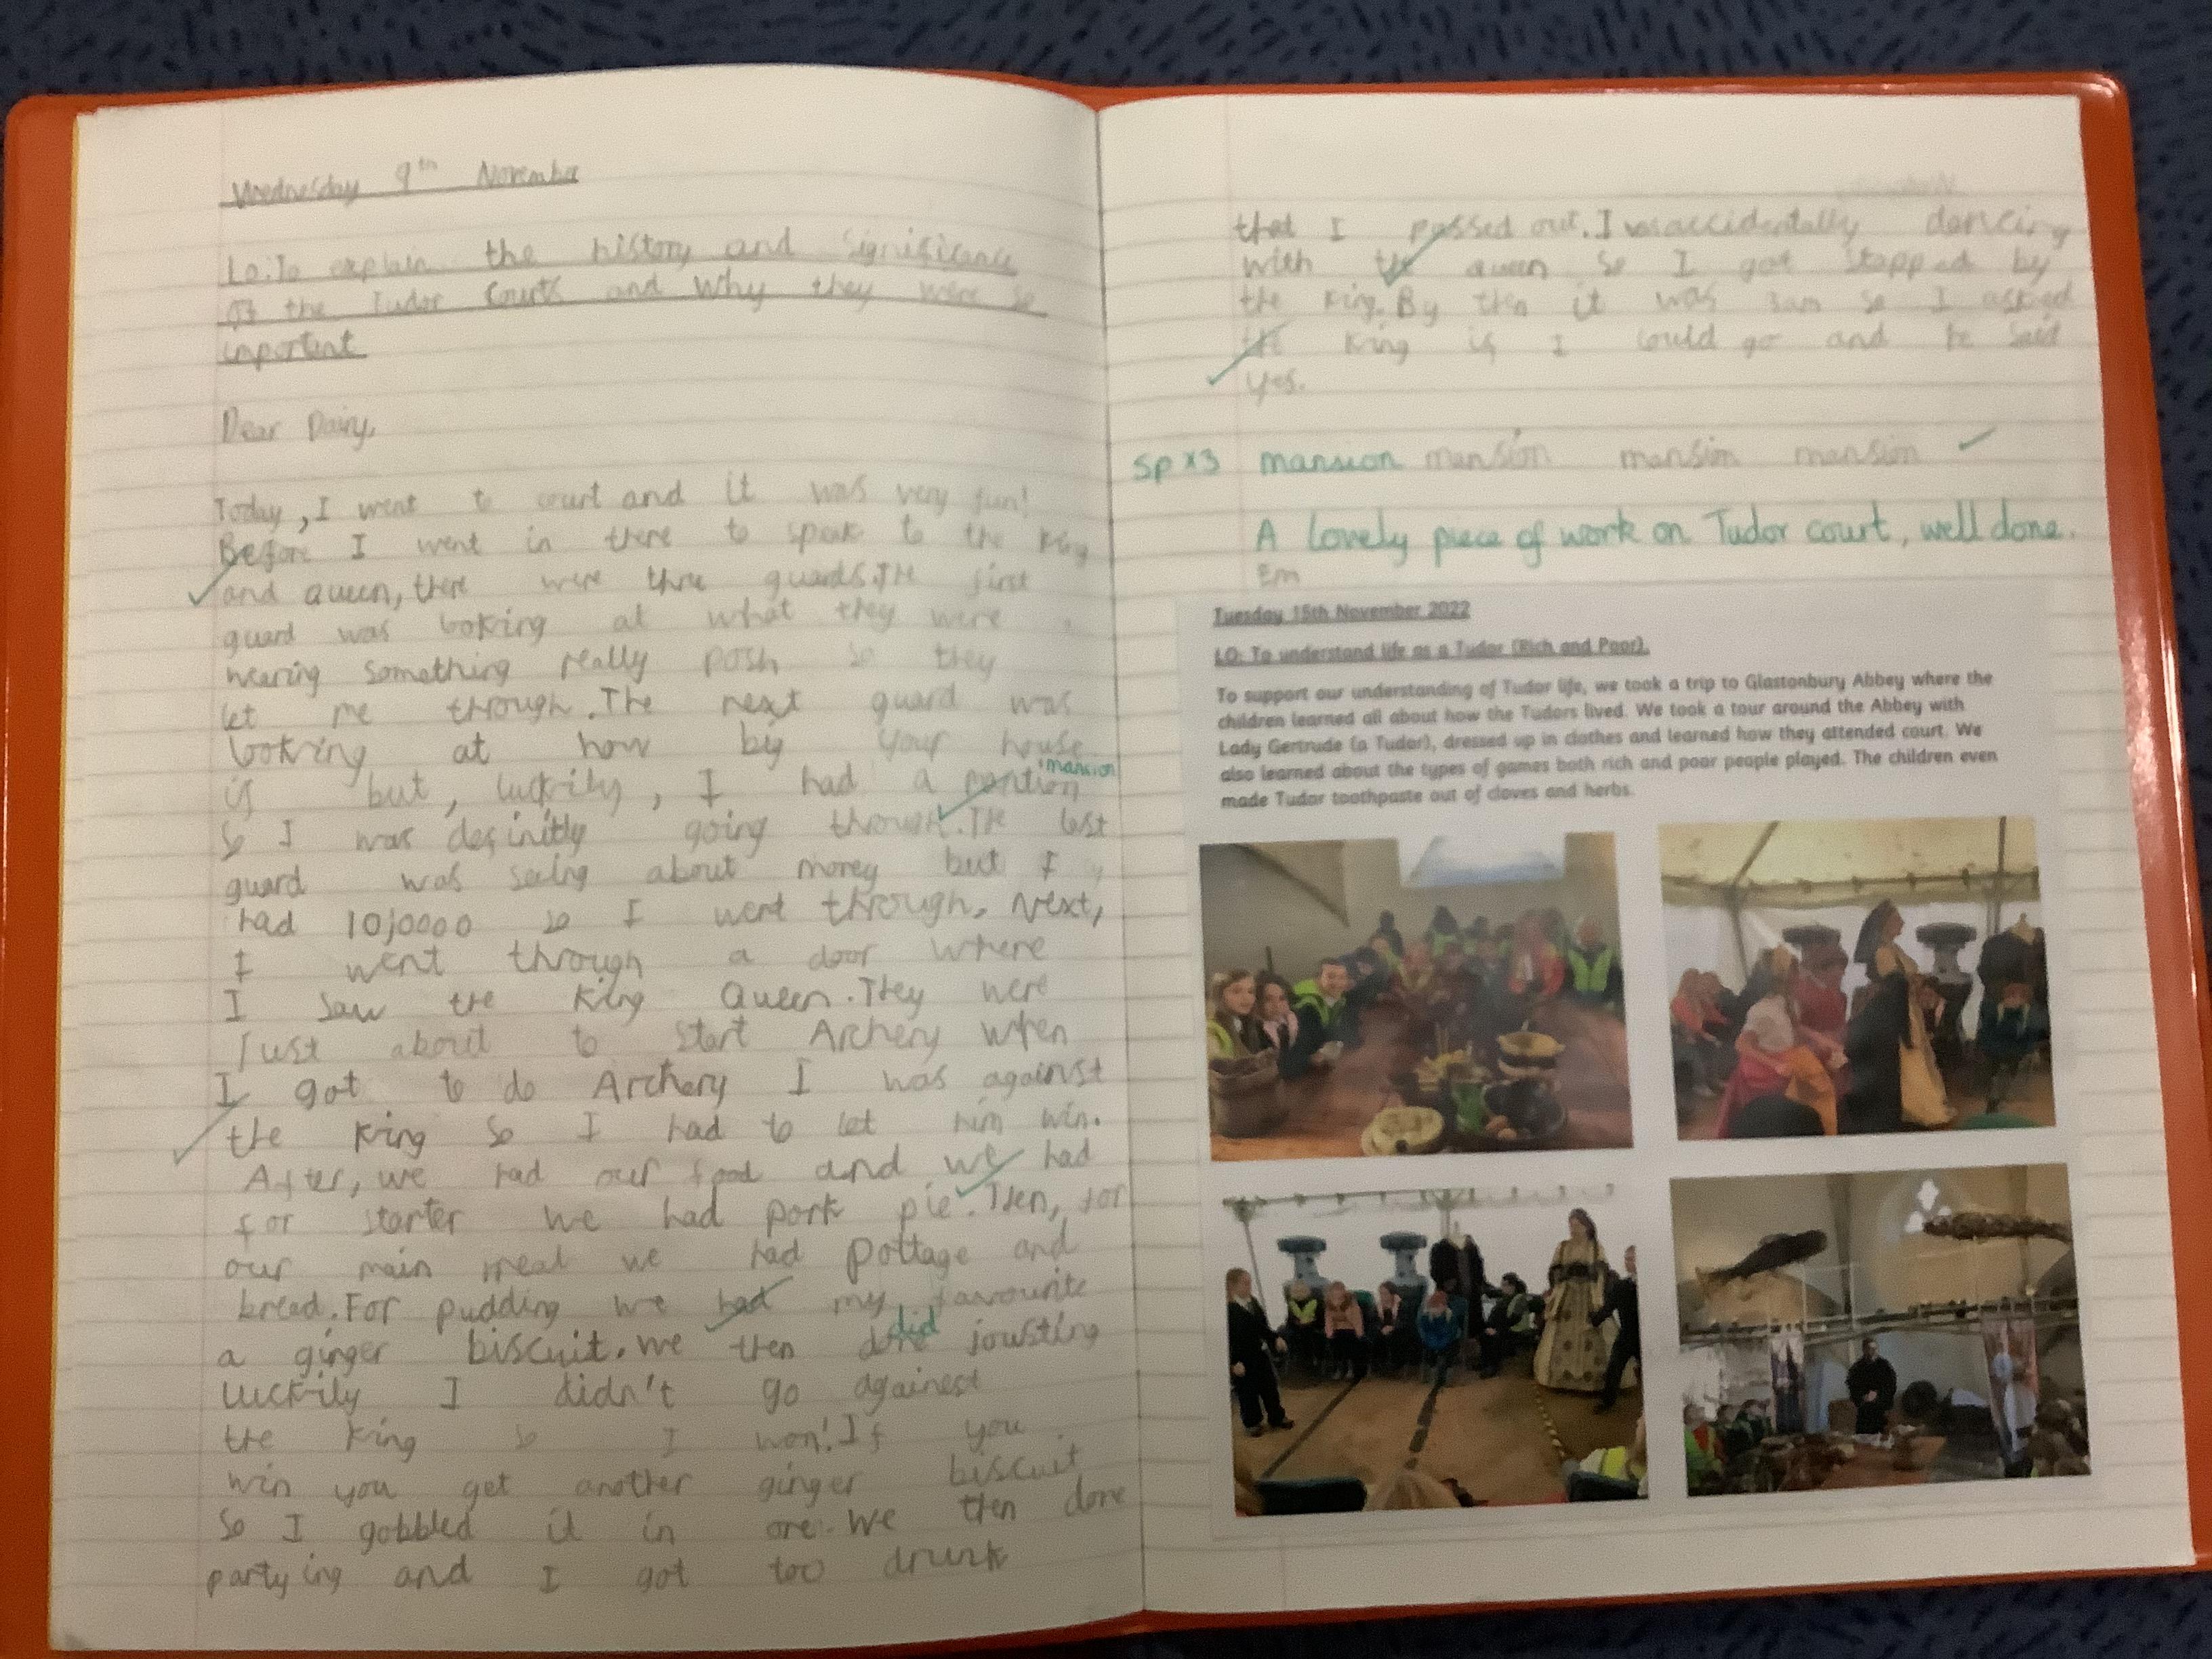 Wednesday 9th November
Lo: To explain the history and significance
of the Tudor Courts and why they were so
important
Dear Dairy,
Today, I went to court and it was very fun!
Before I went in there to speak to the king
and queen, there were three guards. The first
guard was looking at what they were
wearing something really posh so they
let me through. The next guard was
looking at how big your house
is but, luckily, I had a mantion
mansion
so I was definitly going through. The last
guard was seeing about money but I
had 10,0000 so I went through. Next,
I went through a door where
I saw the King Queen. They were
Just about to start Archery when
I got to do Archery I was against
the King so I had to let him win.
After, we had our food and we had
for starter we had pork pie. Then, for
our main meal we had pottage and
bread. For pudding we had my favourite
a ginger biscuit. We then done jousting
did
luckily I didn't go against
the King so I won! If you
win you get another ginger biscuit
So I gobbled it in one. We then done
partying and I got too drunk
that I passed out. I was accidentally dancing
with the queen so I got stopped by
the King. By then it was 3am so I asked
the King if I could go and he said
yes.
sp x3 mansion mansion mansion mansion
A lovely piece of work on Tudor court, well done.
Em
Tuesday 15th November 2022
LO: To understand life as a Tudor (Rich and Poor).
To support our understanding of Tudor life, we took a trip to Glastonbury Abbey where the
children learned all about how the Tudors lived. We took a tour around the Abbey with
Lady Gertrude (a Tudor), dressed up in clothes and learned how they attended court. We
also learned about the types of games both rich and poor people played. The children even
made Tudor toothpaste out of cloves and herbs.